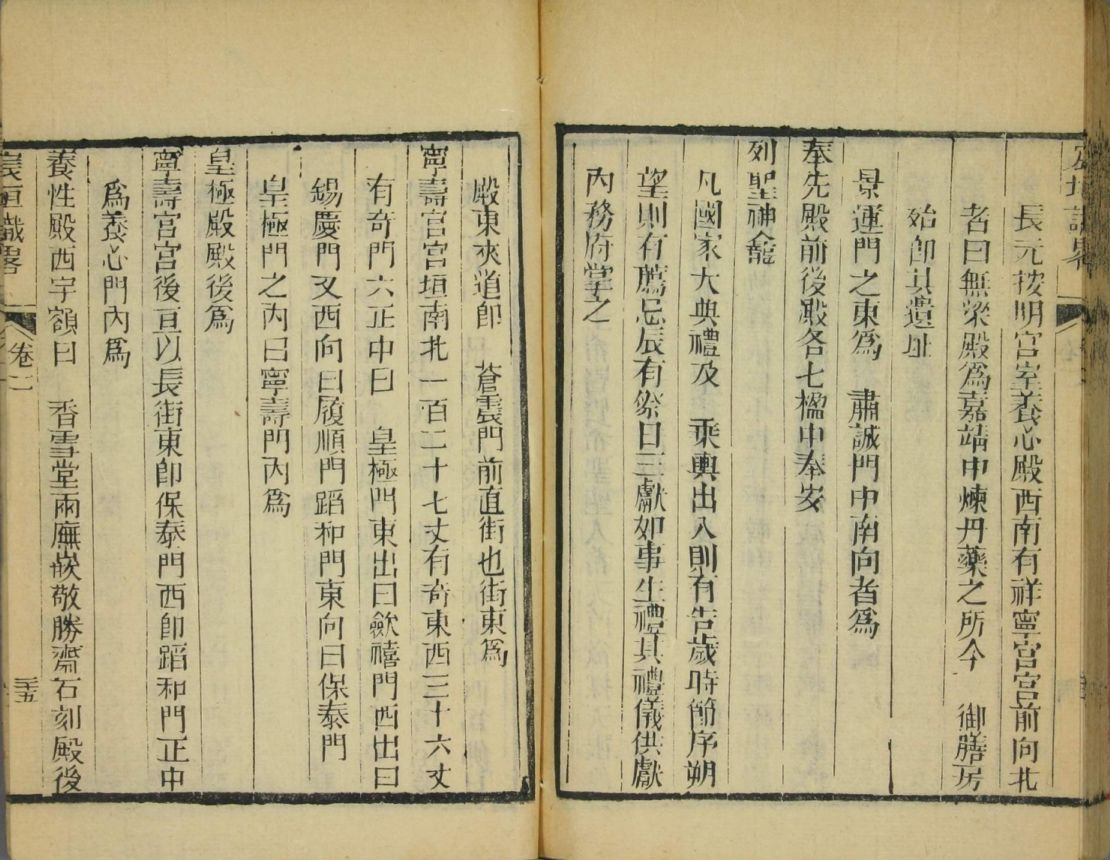 宸垣識畧
長元按明宫室養心殿西南有祥寧宫宫前向北
者曰無梁殿爲嘉靖中煉丹藥之所今 御膳房
殆即其遺址
景運門之東爲 肅誠門中南向者爲
奉先殿前後殿各七楹中奉安
列聖神龕
凡國家大典禮及 乘輿出入則有告歲時節序朔
望則有薦忌辰有祭日三獻如事生禮其禮儀供獻
内務府掌之
殿東夾道即 蒼震門前直街也街東爲
寧壽宫宫垣南北一百二十七丈有奇東西三十六丈
有奇門六正中曰 皇極門東出曰歛禧門西出曰
錫慶門又西向曰履順門蹈和門東向曰保泰門
皇極門之内曰寧壽門内爲
皇極殿殿後爲
寧壽宫宫後亘以長街東即保泰門西即蹈和門正中
爲養心門内爲
養性殿西宇額曰 香雪堂兩廡嵌敬勝齋石刻殿後
宸垣識畧
卷二
三十五